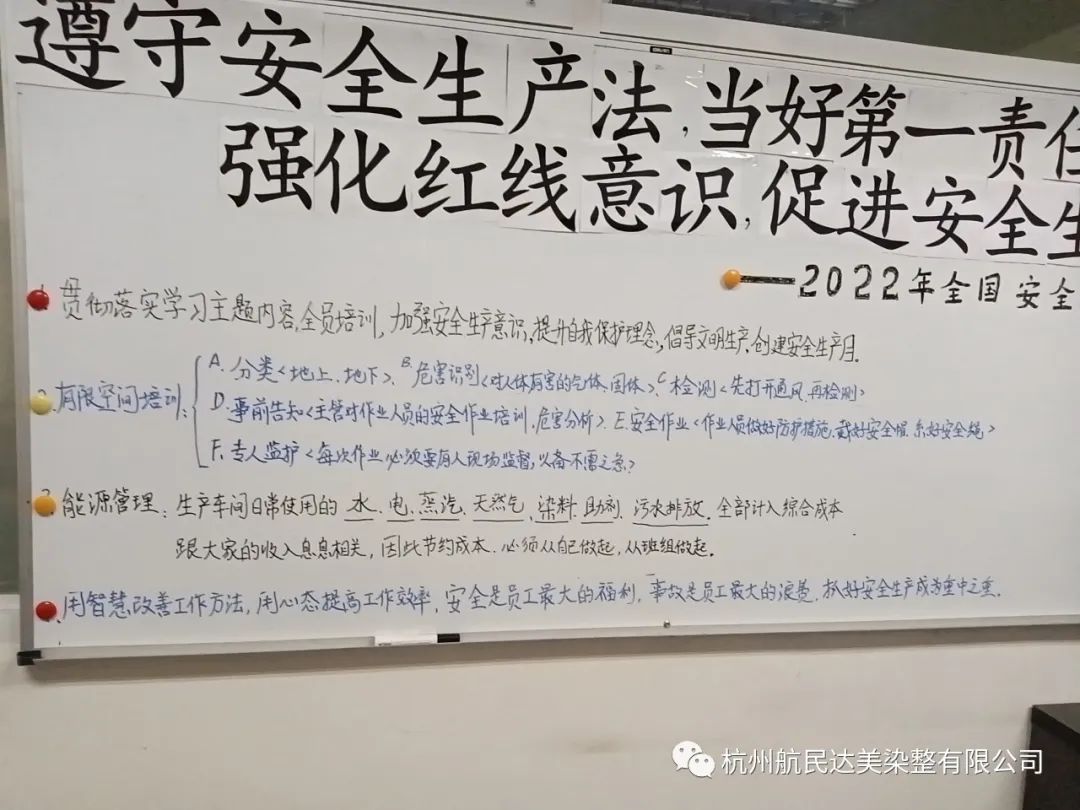 遵守安全生产法,当好第一责任
强化红线意识,促进安全生
——2022年全国安全
贯彻落实学习主题内容,全员培训,加强安全生产意识,提升自我保护理念,倡导文明生产,创建安全生产月.
2.有限空间培训:
A.分类<地上、地下>、B.危害识别<对人体有害的气体、固体>、C.检测<先打开通风、再检测>
D.事前告知<主管对作业人员的安全作业培训,危害分析>、E.安全作业<作业人员做好防护措施,戴好安全帽、系好安全绳>
F.专人监护<每次作业必须要有人现场监督,以备不需之急>
能源管理:生产车间日常使用的水、电、蒸汽、天然气、染料、助剂、污水排放.全部计入综合成本
跟大家的收入息息相关,因此节约成本.必须从自己做起,从班组做起.
用智慧改善工作方法,用心态提高工作效率,安全是员工最大的福利,事故是员工最大的浪费,抓好安全生产成为重中之重.
杭州航民达美染整有限公司